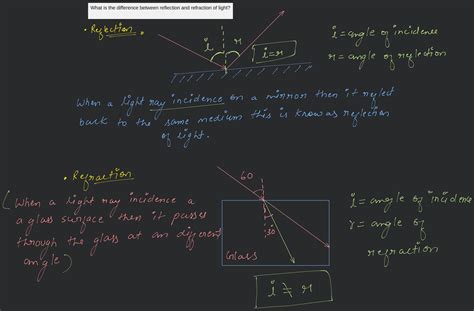 What is the difference between reflection and refraction of light?
• Reflection.
i r
i = r
i = angle of incidence
r = angle of reflection
When a light ray incidence on a mirror then it reflect
back to the same medium this is know as reflection
of light.
• Refraction
(When a light ray incidence a
a glass surface then it passes
through the glass at an different
angle)
60
30
Glass
i ≠ r
i = angle of incidence
r = angle of
refraction